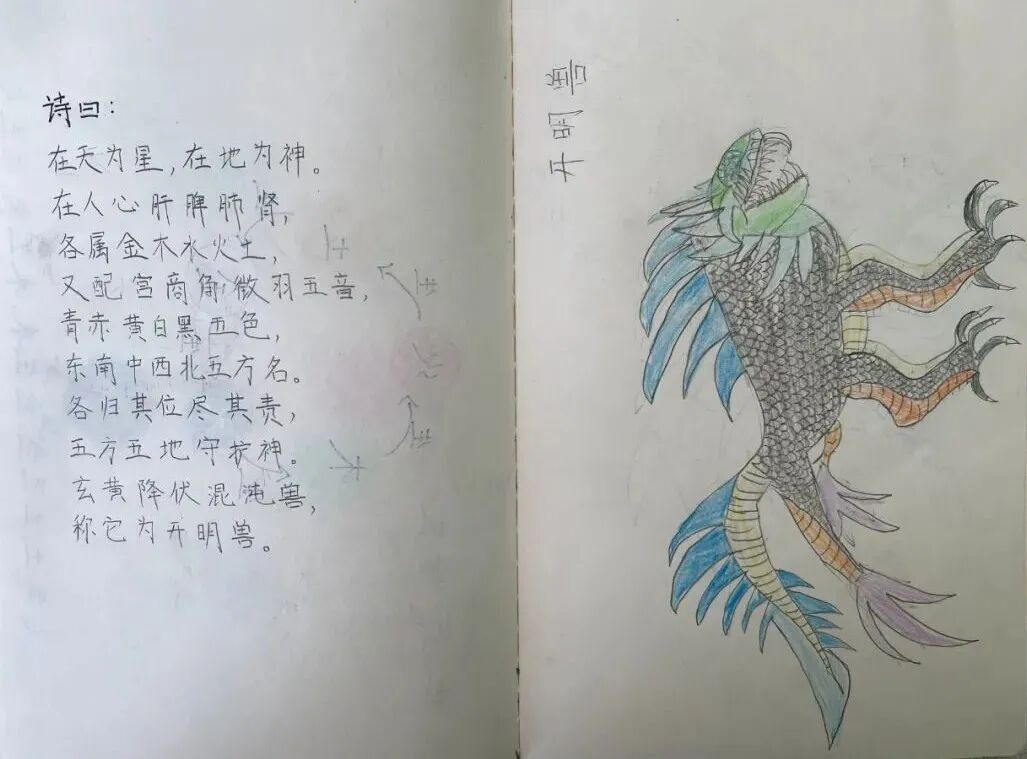 诗曰:
在天为星,在地为神。
在人心肝脾肺肾,
各属金木水火土,
又配宫商角徵羽五音,
青赤黄白黑五色,
东南中西北五方名。
各归其位尽其责,
五方五地守护神。
玄黄降伏混沌兽,
称它为开明兽。
开明兽